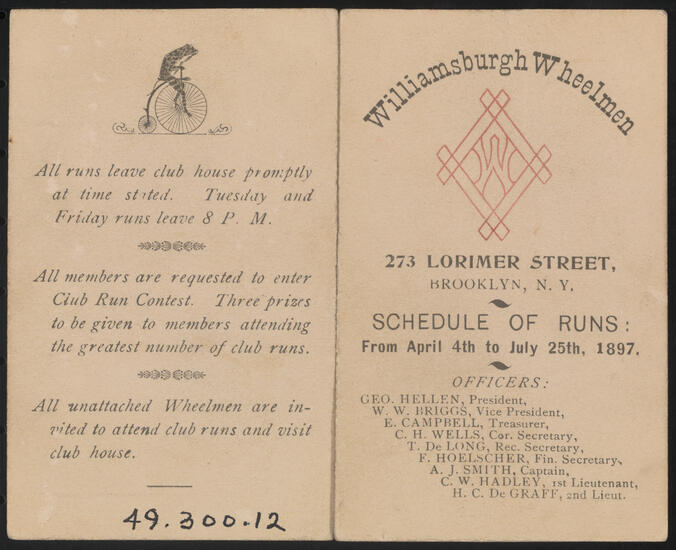 All runs leave club house promptly
at time stated. Tuesday and
Friday runs leave 8 P. M.
All members are requested to enter
Club Run Contest. Three prizes
to be given to members attending
the greatest number of club runs.
All unattached Wheelmen are in-
vited to attend club runs and visit
club house.
49.300.12
Williamsburgh Wheelmen
W
273 LORIMER STREET,
BROOKLYN, N. Y.
SCHEDULE OF RUNS:
From April 4th to July 25th, 1897.
OFFICERS:
GEO. HELLEN, President,
W. W. BRIGGS, Vice President,
E. CAMPBELL, Treasurer,
C. H. WELLS, Cor. Secretary,
T. De LONG, Rec. Secretary,
F. HOELSCHER, Fin. Secretary,
A. J. SMITH, Captain,
C. W. HADLEY, 1st Lieutenant,
H. C. De GRAFF, 2nd Lieut.